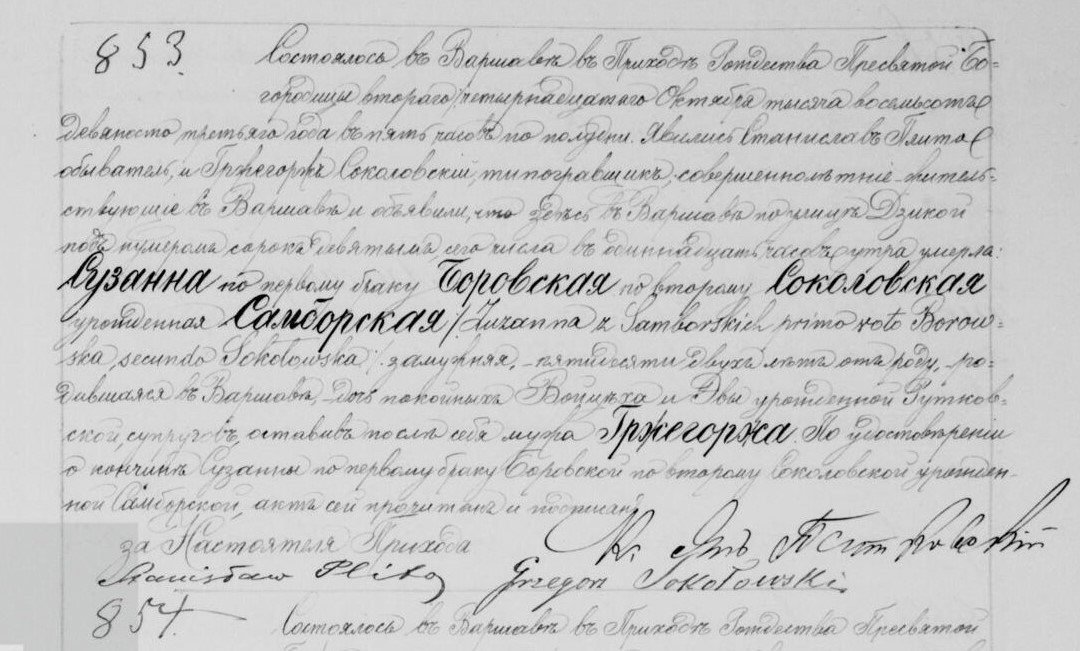 853.
Состоялось въ Варшавѣ въ Приходѣ Рождества Пресвятой Бо=
городицы втораго/четырнадцатаго Октября тысяча восемьсотъ
девяносто третьяго года въ пять часовъ по полудни. Явились Станиславъ Плита
обыватель, и Гржегоржъ Соколовскій, типогравщикъ, совершеннолѣтніе житель=
ствующіе въ Варшавѣ и объявили, что здѣсь въ Варшавѣ по улицѣ Дзикой
подъ нумеромъ сорокъ девятымъ, сего числа въ одиннадцать часовъ утра умерла:
Сузанна по первому браку Боровская по второму Соколовская
урожденная Самборская /:Zuzanna z Samborskich primo voto Borow=
ska, secundo Sokołowska:/ замужняя, пятидесяти двухъ лѣтъ отъ роду, ро=
дившаяся въ Варшавѣ, дочь покойныхъ Войцѣха и Эвы урожденной Рутков=
ской, супруговъ, оставивъ послѣ себя мужа Гржегоржа. По удостовѣреніи
о кончинѣ Сузанны по первому браку Боровской по второму Соколовской урожден-
ной Самборской, актъ сей прочитанъ и подписанъ
за Настоятеля Прихода
Stanisław Plita Grzegorz Sokołowski
854.
Состоялось въ Варшавѣ въ Приходѣ Рождества Пресвятой